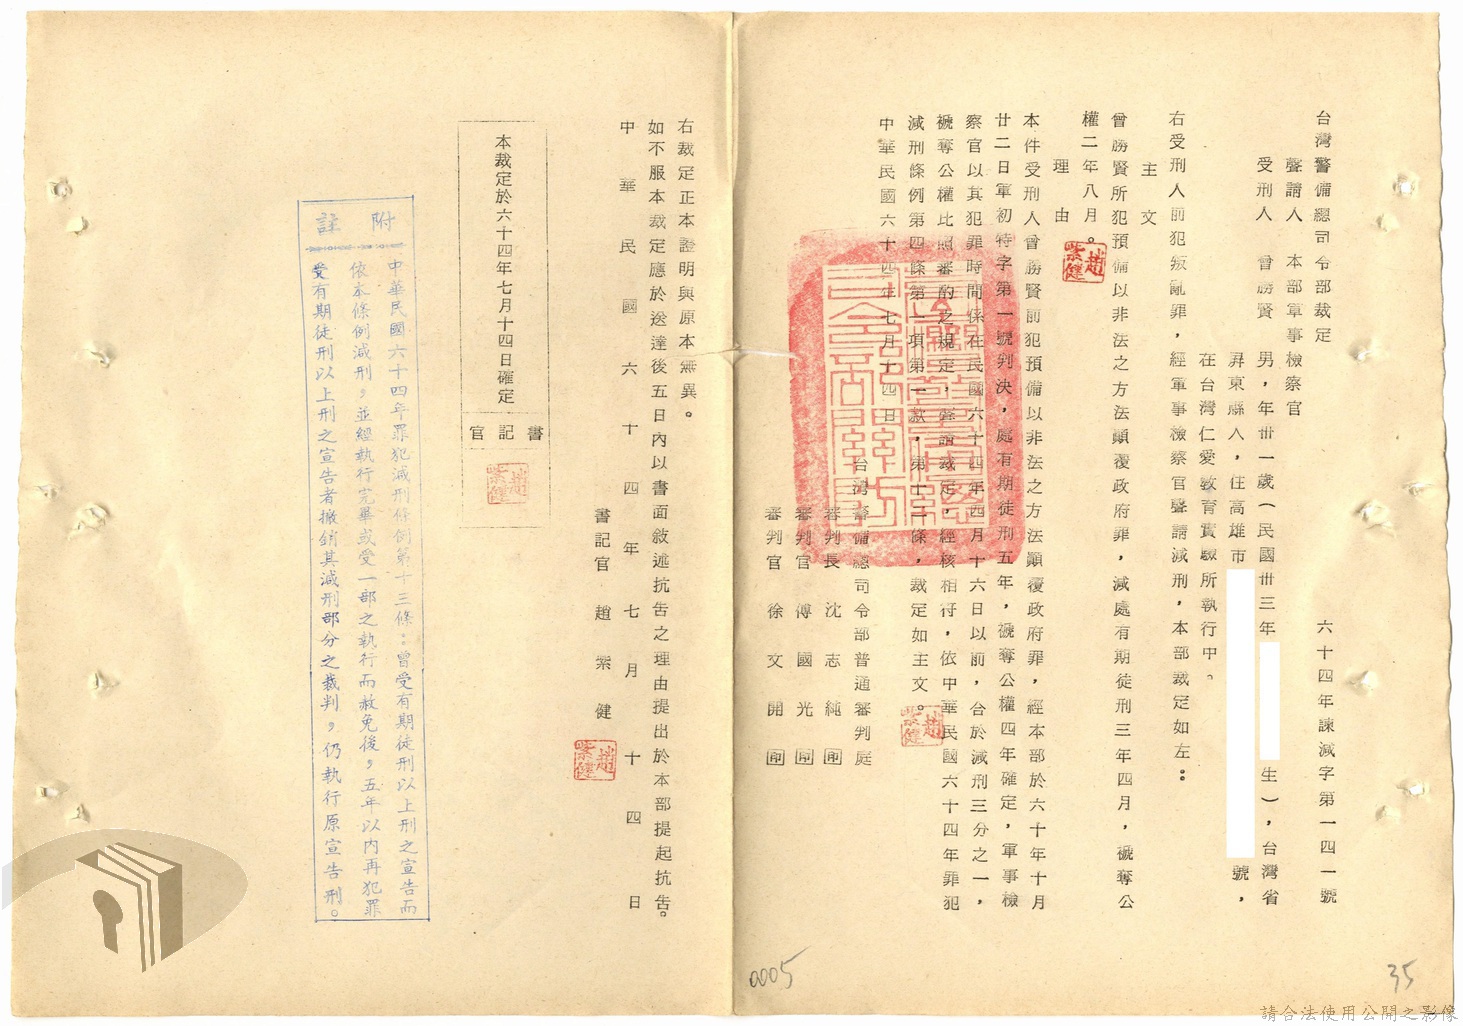 台灣警備總司令部裁定　六十四年諫減字第一四一號
聲請人　本部軍事檢察官
受刑人　曾勝賢　男，年卅一歲（民國卅三年　生），台灣省
屏東縣人，住高雄市　號，
在台灣仁愛教育實驗所執行中。
右受刑人前犯叛亂罪，經軍事檢察官聲請減刑，本部裁定如左：
主文
曾勝賢所犯預備以非法之方法顛覆政府罪，減處有期徒刑三年四月，褫奪公
權二年八月。
理由
本件受刑人曾勝賢前犯預備以非法之方法顛覆政府罪，經本部於六十年十月
廿二日軍初特字第一號判決，處有期徒刑五年，褫奪公權四年確定，軍事檢
察官以其犯罪時間係在民國六十四年四月十六日以前，合於減刑三分之一，
褫奪公權比照審酌之規定，聲請裁定，經核相符，依中華民國六十四年罪犯
減刑條例第四條第一項第一款，第十二條，裁定如主文。
中華民國六十四年七月十四日
台灣警備總司令部普通審判庭
審判長　沈志純　印
審判官　傅國光　印
審判官　徐文開　印
右裁定正本證明與原本無異。
如不服本裁定應於送達後五日內以書面敘述抗告之理由提出於本部提起抗告。
中華民國六十四年七月十四日
書記官　趙縈健
本裁定於六十四年七月十四日確定
書記官
附註
中華民國六十四年罪犯減刑條例第十三條：曾受有期徒刑以上刑之宣告而
依本條例減刑，並經執行完畢或受一部之執行而赦免後，五年以內再犯罪
受有期徒刑以上刑之宣告者撤銷其減刑部分之裁判，仍執行原宣告刑。
0005
35
請合法使用公開之影像